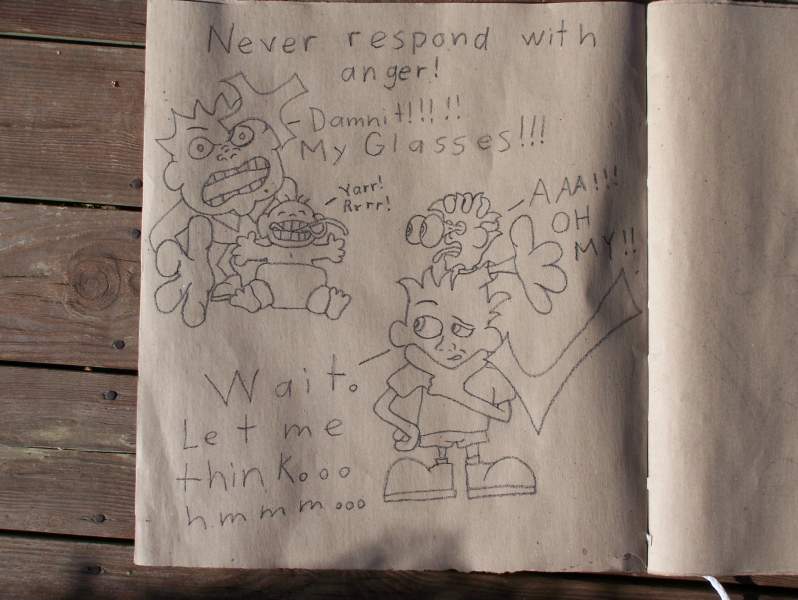 Never respond with
anger!
Damnit!!!!!
My Glasses!!!
Yarr!
Rrrr!
AAA!!!
OH
MY!!
Wait.
Let me
think...
hmmm...